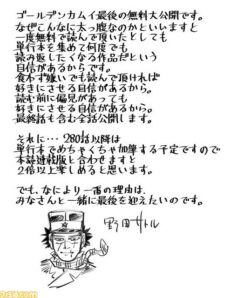 ゴールデンカムイ最後の無料大公開です。
なぜこんなに太っ腹なのかといいますと
一度無料で読んで頂いたとしても
単行本を集めて何度でも
読み返したくなる作品だという
自信があるからです。
食わず嫌いでも読んで頂ければ
好きにさせる自信があるから。
読む前に偏見があっても
好きにさせる自信があるから。
最終話も含む全話公開します。
それに…280話以降は
単行本でめちゃくちゃ加筆する予定ですので
本誌連載版と合わせますと
2倍以上楽しめると思います。
でも、なにより一番の理由は、
みなさんと一緒に最後を迎えたいのです。
野田サトル